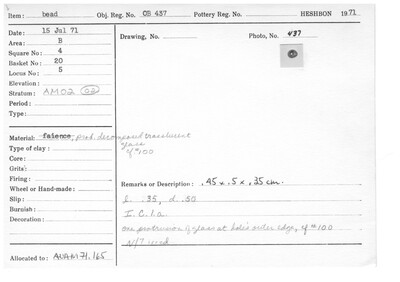 Item: bead Obj. Reg. No. OB 437 Pottery Reg. No. HESHBON 1971
Date: 15 Jul 71
Area: B
Square No: 4
Basket No: 20
Locus No: 5
Elevation:
Stratum: AM02 02
Period:
Type:
Drawing, No. Photo, No. 437
Material: faience, prob. decomposed translucent
glass
cf #100
Type of clay:
Core:
Grits:
Firing:
Wheel or Hand-made:
Slip:
Burnish:
Decoration:
Remarks or Description: .45 x .5 x .35 cm.
l. .35, d. .50
I.C.1.a
one protrusion of glass at hole's outer edge, cf #100
N/T used
Allocated to: AUAM 71.165